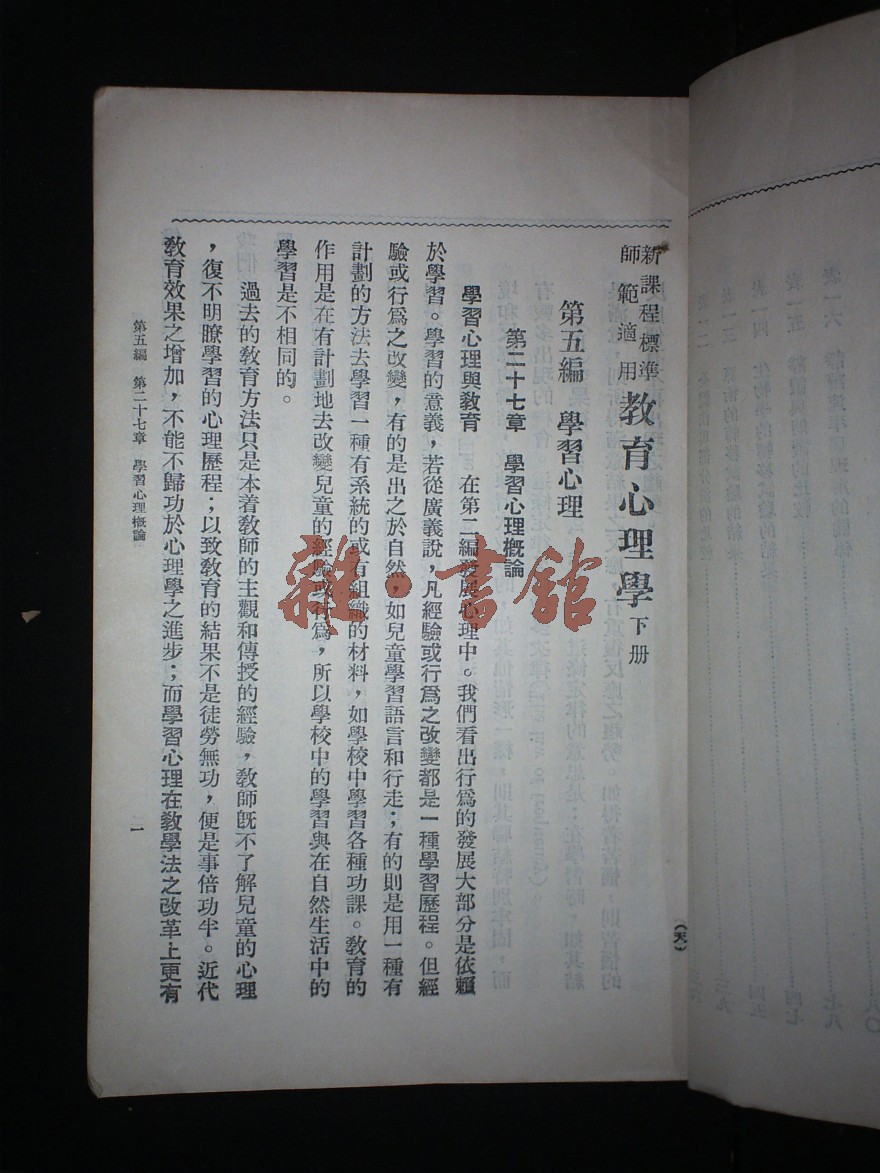 新課程標準
師範適用
教育心理學 下册
(天)
第五編 學習心理
第二十七章 學習心理概論
學習心理與教育 在第二編發展心理中。我們看出行爲的發展大部分是依賴
於學習。學習的意義，若從廣義說，凡經驗或行爲之改變都是一種學習歷程。但經
驗或行爲之改變，有的是出之於自然，如兒童學習語言和行走；有的則是用一種有
計劃的方法去學習一種有系統的或有組織的材料，如學校中學習各種功課。教育的
作用是在有計劃地去改變兒童的經驗或行爲，所以學校中的學習與在自然生活中的
學習是不相同的。
過去的教育方法只是本着教師的主觀和傳授的經驗，教師旣不了解兒童的心理
，復不明瞭學習的心理歷程；以致教育的結果不是徒勞無功，便是事倍功半。近代
教育效果之增加，不能不歸功於心理學之進步；而學習心理在教學法之改革上更有
第五編 第二十七章 學習心理概論
一
雜·書館